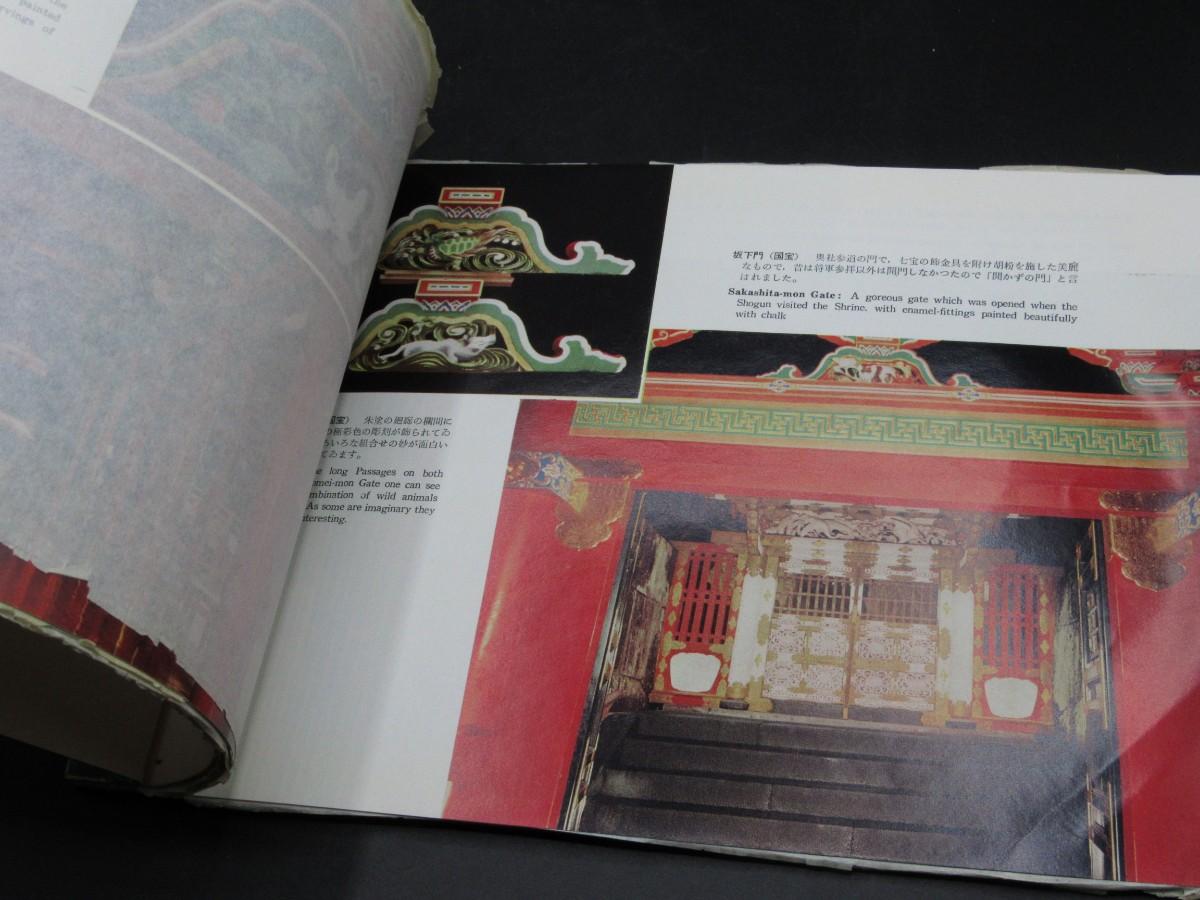 the
painted
rvings of
坂下門（国宝） 奥社参道の門で，七宝の飾金具を附け胡粉を施した美麗
なもので，昔は将軍参拝以外は開門しなかつたので「開かずの門」と言
はれました。
Sakashita-mon Gate: A goreous gate which was opened when the
Shogun visited the Shrine, with enamel-fittings painted beautifully
with chalk
国宝） 朱塗の廻廊の欄間に
極彩色の彫刻が飾られてゐ
ろいろな組合せの妙が面白い
てゐます。
long Passages on both
omei-mon Gate one can see
mbination of wild animals
As some are imaginary they
nteresting.